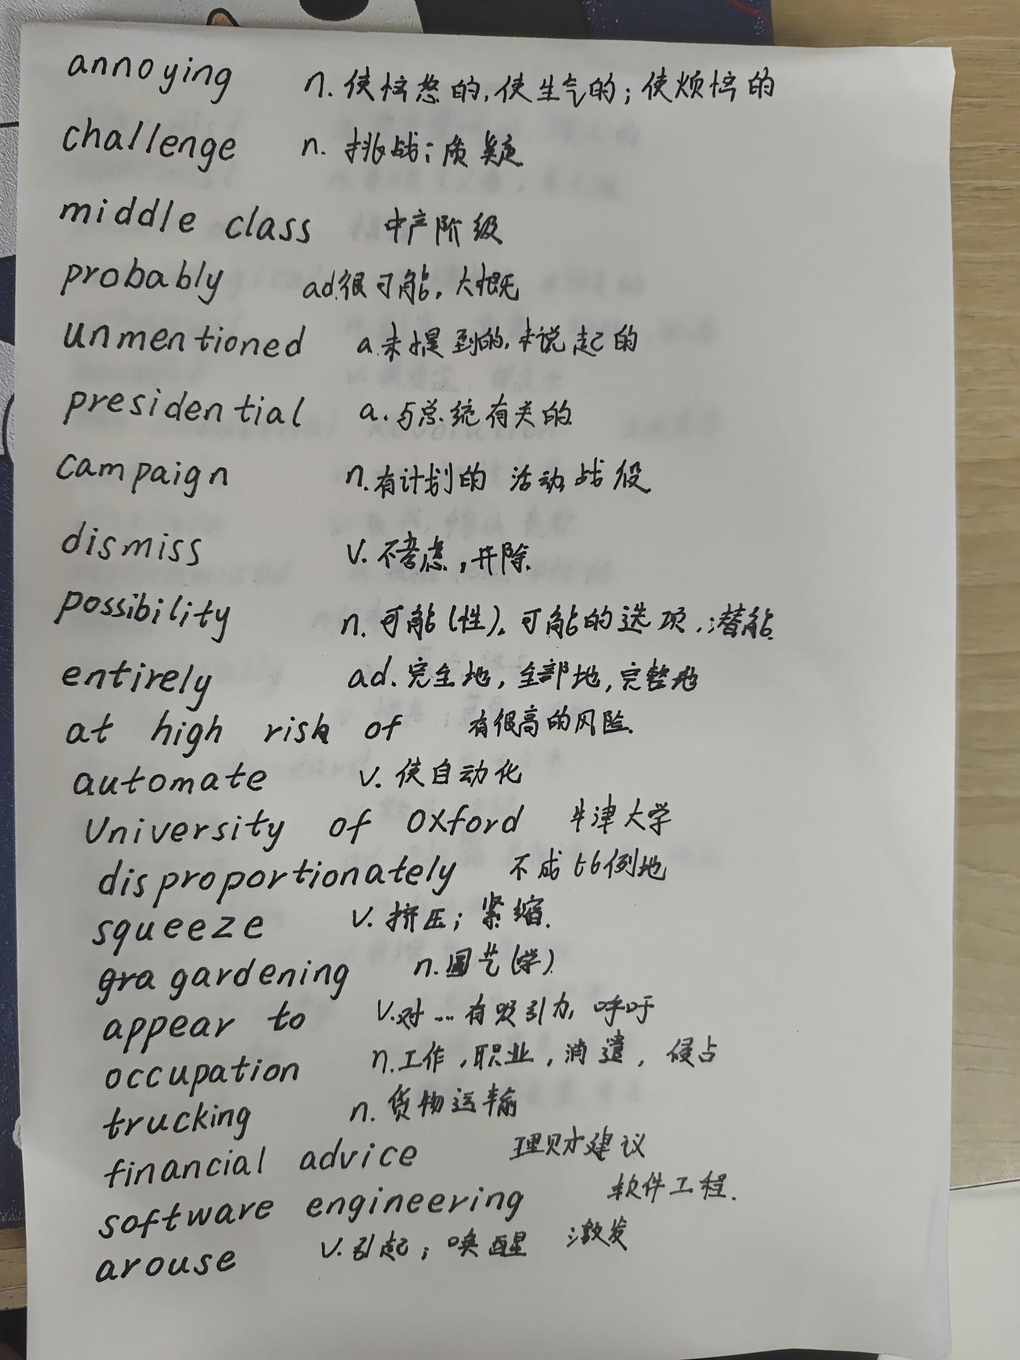 annoying n. 使恼怒的,使生气的;使烦恼的
challenge n. 挑战;质疑
middle class 中产阶级
probably ad.很可能,大概
unmentioned a.未提到的,未说起的
presidential a.与总统有关的
campaign n.有计划的 活动 战役
dismiss v.不考虑,开除.
possibility n.可能(性),可能的选项,潜能
entirely ad.完全地,全部地,完整地
at high risk of 有很高的风险.
automate v.使自动化
University of Oxford 牛津大学
disproportionately 不成比例地
squeeze v.挤压;紧缩.
gra gardening n.园艺(学)
appear to v.对...有吸引力,呼吁
occupation n.工作,职业,消遣,侵占
trucking n.货物运输
financial advice 理财建议
software engineering 软件工程.
arouse v.引起;唤醒 激发